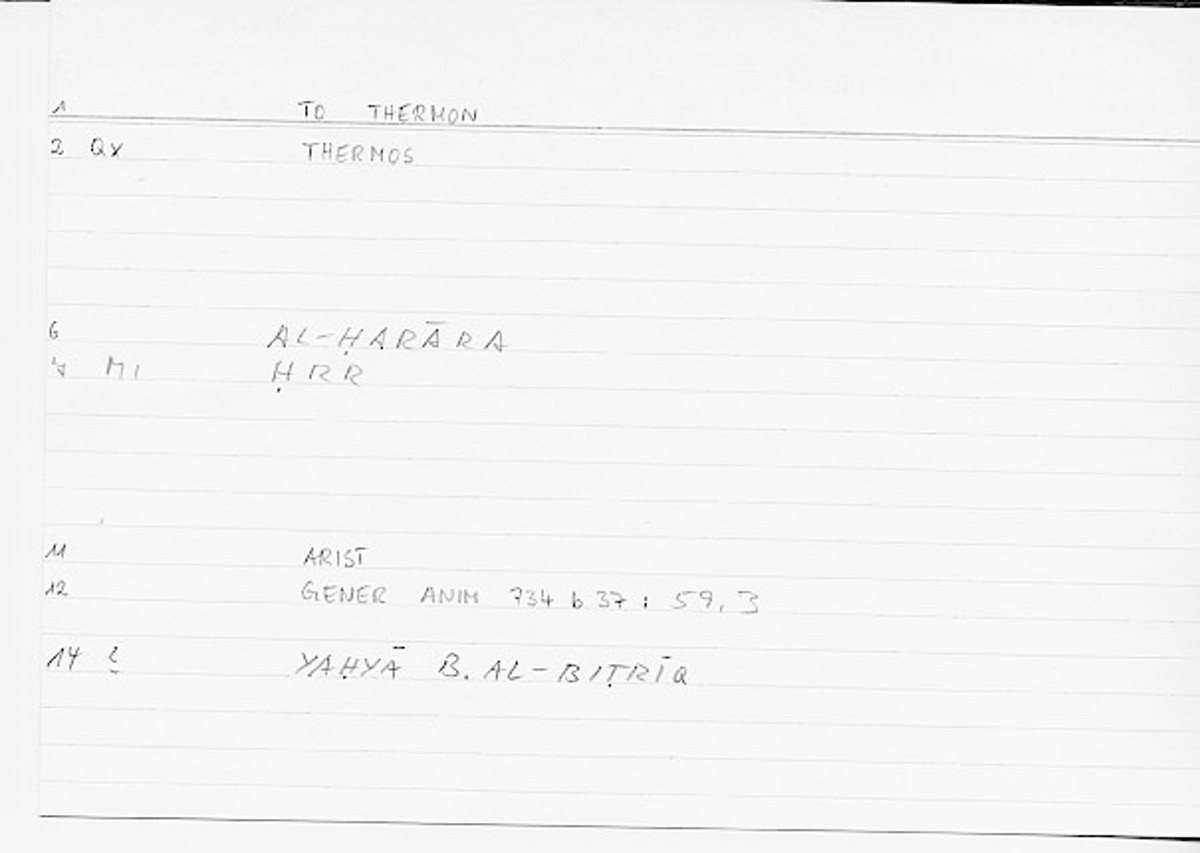 1 TO THERMON
2 Qx THERMOS
6 AL-ḤARĀRA
MI ḤRR
11 ARIST
12 GENER ANIM 734 b 37 : 59, 3
14 YAḤYĀ B. AL-BIṬRĪQ